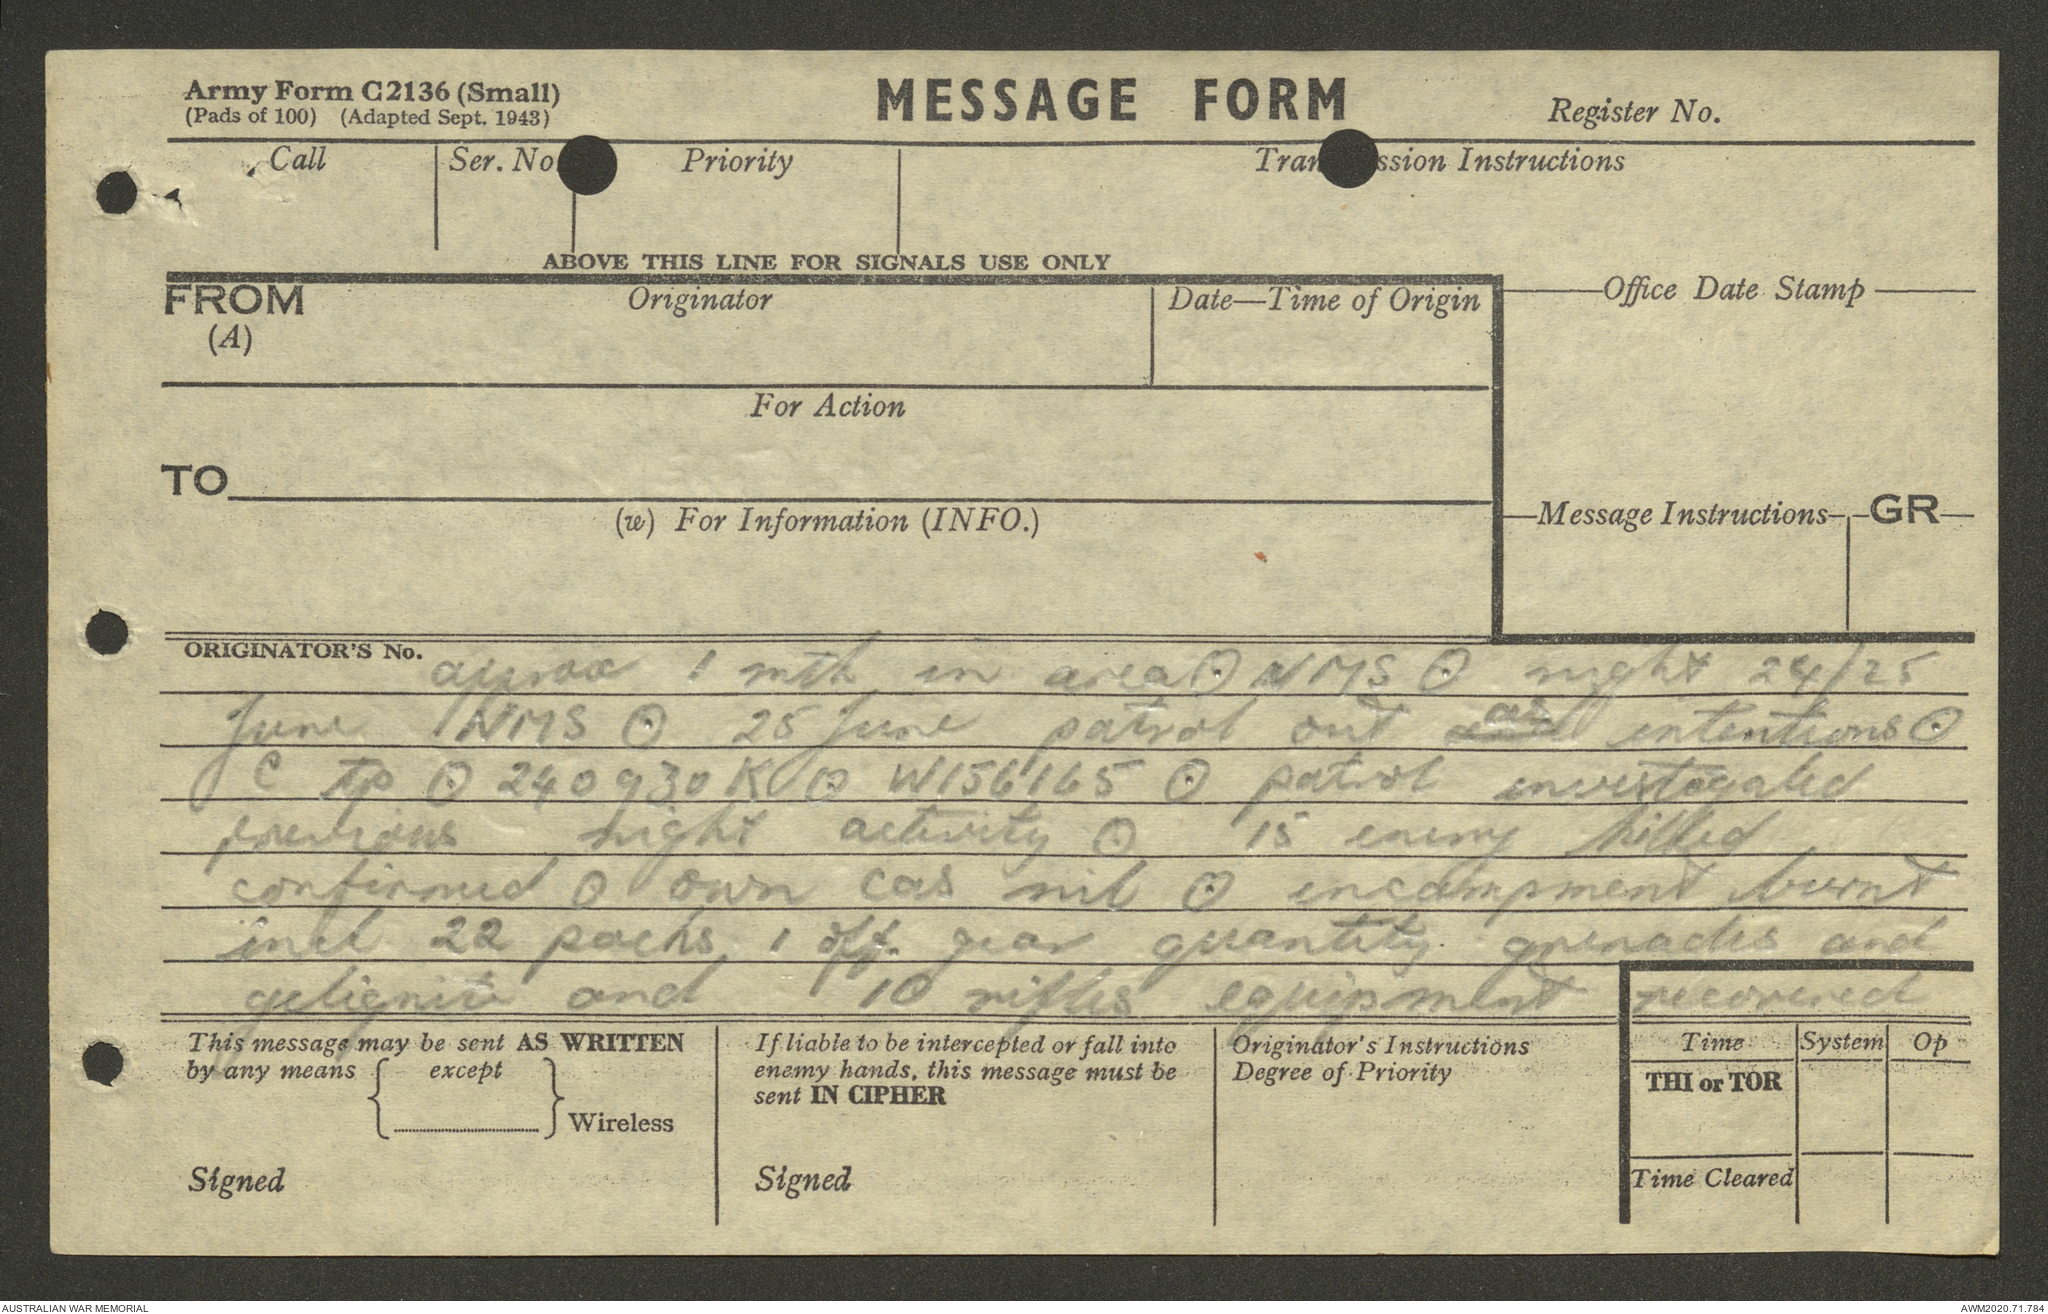 Army Form C2136 (Small)
(Pads of 100) (Adapted Sept. 1943)
MESSAGE FORM
Register No.
Call
Ser. No.
Priority
Tran ssion Instructions
ABOVE THIS LINE FOR SIGNALS USE ONLY
FROM
(A)
Originator
Date—Time of Origin
Office Date Stamp
For Action
TO
(w) For Information (INFO.)
Message Instructions
GR
ORIGINATOR'S No.
aprox 1 mth in area ⊙ NMS ⊙ night 24/25
June NMS ⊙ 25 June patrol out as intentions ⊙
C tp ⊙ 240930K ⊙ W156165 ⊙ patrol investogated
previous night activity ⊙ 15 enemy killed
confirmed ⊙ own cas nil ⊙ encampment burnt
incl 22 packs, 1 off. gear quantity grenades and
gelignite and 10 rifles equipment recovered
This message may be sent AS WRITTEN
by any means
except
Wireless
Signed
If liable to be intercepted or fall into
enemy hands, this message must be
sent IN CIPHER
Signed
Originator's Instructions
Degree of Priority
Time System Op
THI or TOR
Time Cleared
AUSTRALIAN WAR MEMORIAL
AWM2020.71.784